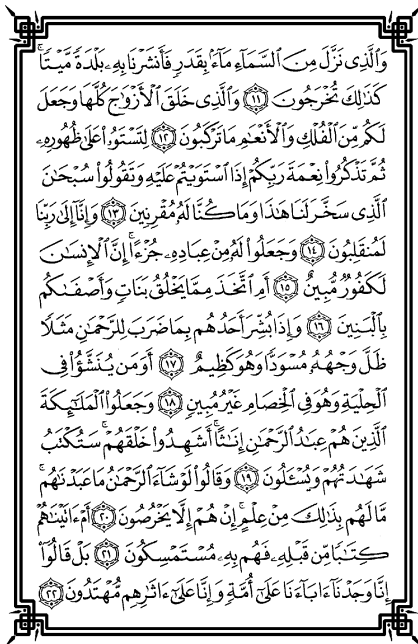 وَالَّذِي نَزَّلَ مِنَ السَّمَاءِ مَاءً بِقَدَرٍ فَأَنشَرْنَا بِهِ بَلْدَةً مَّيْتًا ۚ
كَذَٰلِكَ تُخْرَجُونَ ١١ وَالَّذِي خَلَقَ الْأَزْوَاجَ كُلَّهَا وَجَعَلَ
لَكُم مِّنَ الْفُلْكِ وَالْأَنْعَامِ مَا تَرْكَبُونَ ١٢ لِتَسْتَوُوا عَلَىٰ ظُهُورِهِ
ثُمَّ تَذْكُرُوا نِعْمَةَ رَبِّكُمْ إِذَا اسْتَوَيْتُمْ عَلَيْهِ وَتَقُولُوا سُبْحَانَ
الَّذِي سَخَّرَ لَنَا هَٰذَا وَمَا كُنَّا لَهُ مُقْرِنِينَ ١٣ وَإِنَّا إِلَىٰ رَبِّنَا
لَمُنقَلِبُونَ ١٤ وَجَعَلُوا لَهُ مِنْ عِبَادِهِ جُزْءًا ۚ إِنَّ الْإِنسَانَ
لَكَفُورٌ مُّبِينٌ ١٥ أَمِ اتَّخَذَ مِمَّا يَخْلُقُ بَنَاتٍ وَأَصْفَاكُم
بِالْبَنِينَ ١٦ وَإِذَا بُشِّرَ أَحَدُهُم بِمَا ضَرَبَ لِلرَّحْمَٰنِ مَثَلًا
ظَلَّ وَجْهُهُ مُسْوَدًّا وَهُوَ كَظِيمٌ ١٧ أَوَمَن يُنَشَّؤُا فِي
الْحِلْيَةِ وَهُوَ فِي الْخِصَامِ غَيْرُ مُبِينٍ ١٨ وَجَعَلُوا الْمَلَائِكَةَ
الَّذِينَ هُمْ عِبَادُ الرَّحْمَٰنِ إِنَاثًا ۚ أَشَهِدُوا خَلْقَهُمْ ۚ سَتُكْتَبُ
شَهَادَتُهُمْ وَيُسْأَلُونَ ١٩ وَقَالُوا لَوْ شَاءَ الرَّحْمَٰنُ مَا عَبَدْنَاهُم ۗ
مَّا لَهُم بِذَٰلِكَ مِنْ عِلْمٍ ۖ إِنْ هُمْ إِلَّا يَخْرُصُونَ ٢٠ أَمْ آتَيْنَاهُمْ
كِتَابًا مِّن قَبْلِهِ فَهُم بِهِ مُسْتَمْسِكُونَ ٢١ بَلْ قَالُوا
إِنَّا وَجَدْنَا آبَاءَنَا عَلَىٰ أُمَّةٍ وَإِنَّا عَلَىٰ آثَارِهِم مُّهْتَدُونَ ٢٢